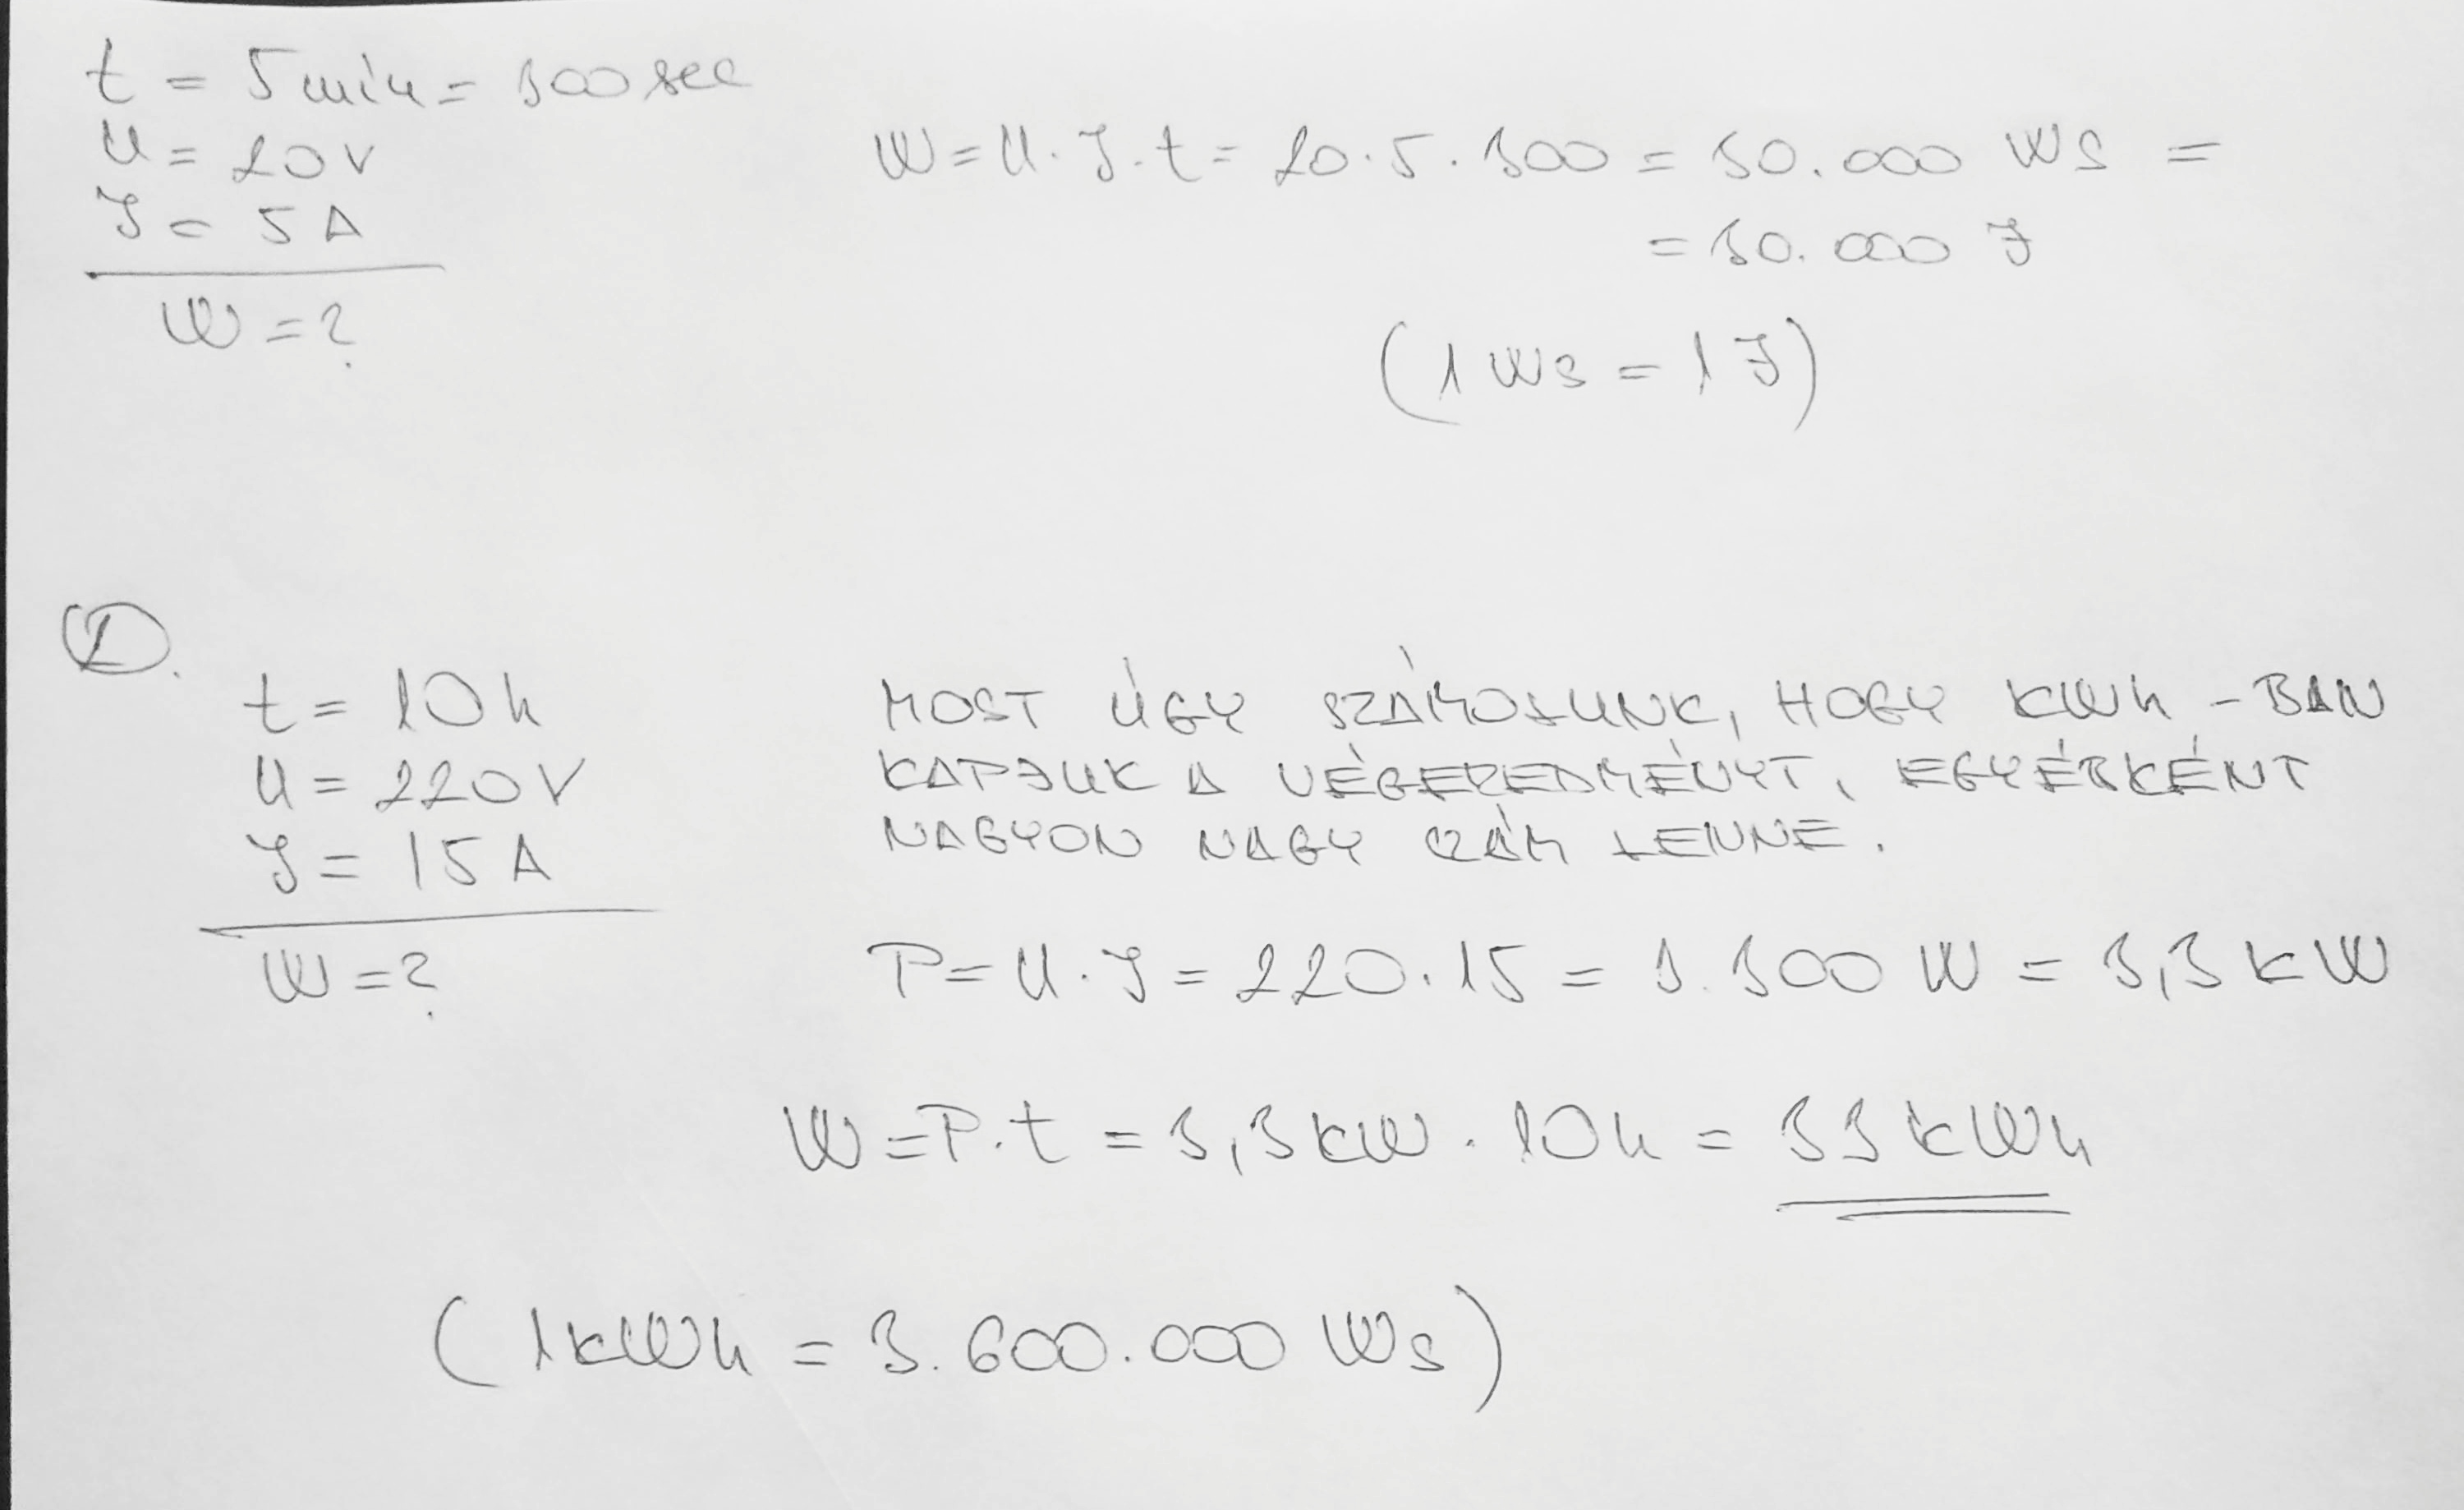 t = 5 min = 300 sec
U = 20 V
I = 5 A
W = ?
W = U · I · t = 20 · 5 · 300 = 30.000 Ws =
= 30.000 J
(1 Ws = 1 J)
2.
t = 10 h
U = 220 V
I = 15 A
W = ?
MOST ÚGY SZÁMOLUNK, HOGY KWh - BAN
KAPJUK A VÉGEREDMÉNYT, EGYÉBKÉNT
NAGYON NAGY SZÁM LENNE.
P = U · I = 220 · 15 = 3.300 W = 3,3 kW
W = P · t = 3,3 kW · 10 h = 33 kWh
(1 kWh = 3.600.000 Ws)